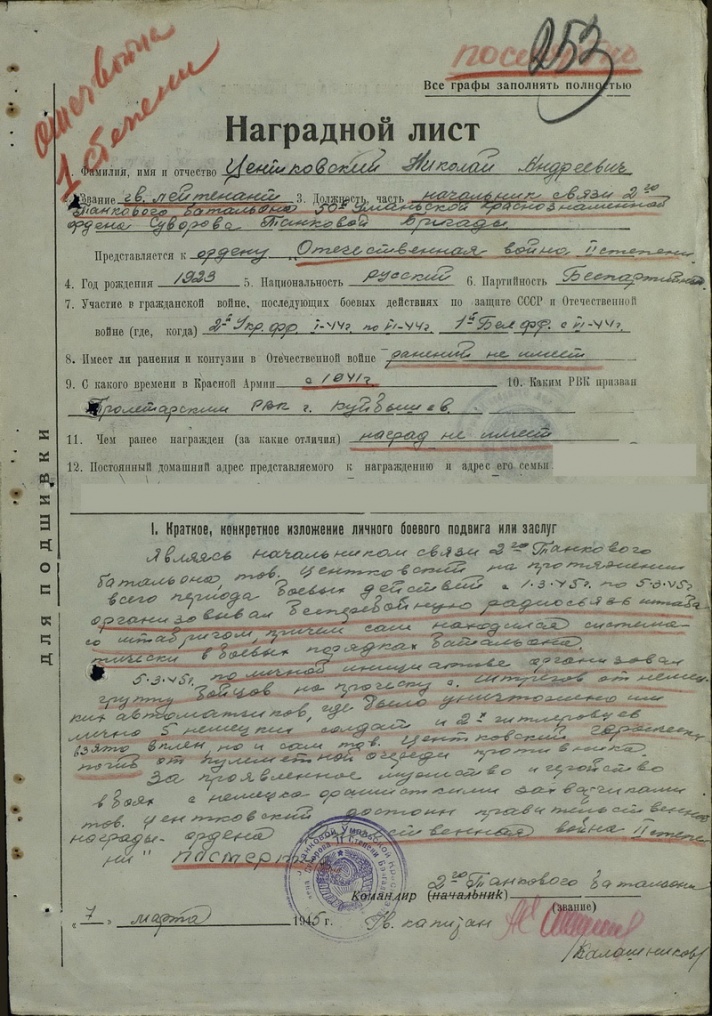 отеч война
1 степени
посмертно
253
Все графы заполнять полностью
Наградной лист
Фамилия, имя и отчество Центковский Николай Андреевич
Звание гв. лейтенант 3. Должность, часть начальник связи 2го
Танкового батальона 50й Уманьской Краснознаменной
ордена Суворова Танковой Бригады
Представляется к ордену „Отечественная война II степени
4. Год рождения 1923 5. Национальность русский 6. Партийность Беспартийный
7. Участие в гражданской войне, последующих боевых действиях по защите СССР и Отечественной
войне (где, когда) 2й Укр. фр. I-44г. по VI-44г. 1й Бел. фр. с VI-44г.
8. Имеет ли ранения и контузии в Отечественной войне ранений не имеет
9. С какого времени в Красной Армии с 1941г. 10. Каким РВК призван
Пролетарским РВК г. Куйбышев.
11. Чем ранее награжден (за какие отличия) наград не имеет
12. Постоянный домашний адрес представляемого к награждению и адрес его семьи
ДЛЯ ПОДШИВКИ
I. Краткое, конкретное изложение личного боевого подвига или заслуг
Являясь начальником связи 2го Танкового
батальона, тов. Центковский на протяжении
всего периода боевых действий с 1.3.45г. по 5.3.45г.
организовывал бесперебойную радиосвязь штаба
со штабригом, причем сам находился система-
тически в боевых порядках батальона.
5.3.45г. по личной инициативе организовал
группу бойцов на проческу с. от немец-
ких автоматчиков, где было уничтожено им
лично 5 немецких солдат и 2х гитлеровцев
взято в плен, но и сам тов. Центковский геройски
погиб от пулеметной очереди противника.
За проявленное мужество и геройство
в боях с немецко-фашистскими захватчиками
тов. Центковский достоин правительственной
награды - ордена ственная война II степе-
ни" посмертно
2го Танкового батальона
Командир (начальник)
(звание)
„7" марта 1945г. Гв. капитан
/Калашников/